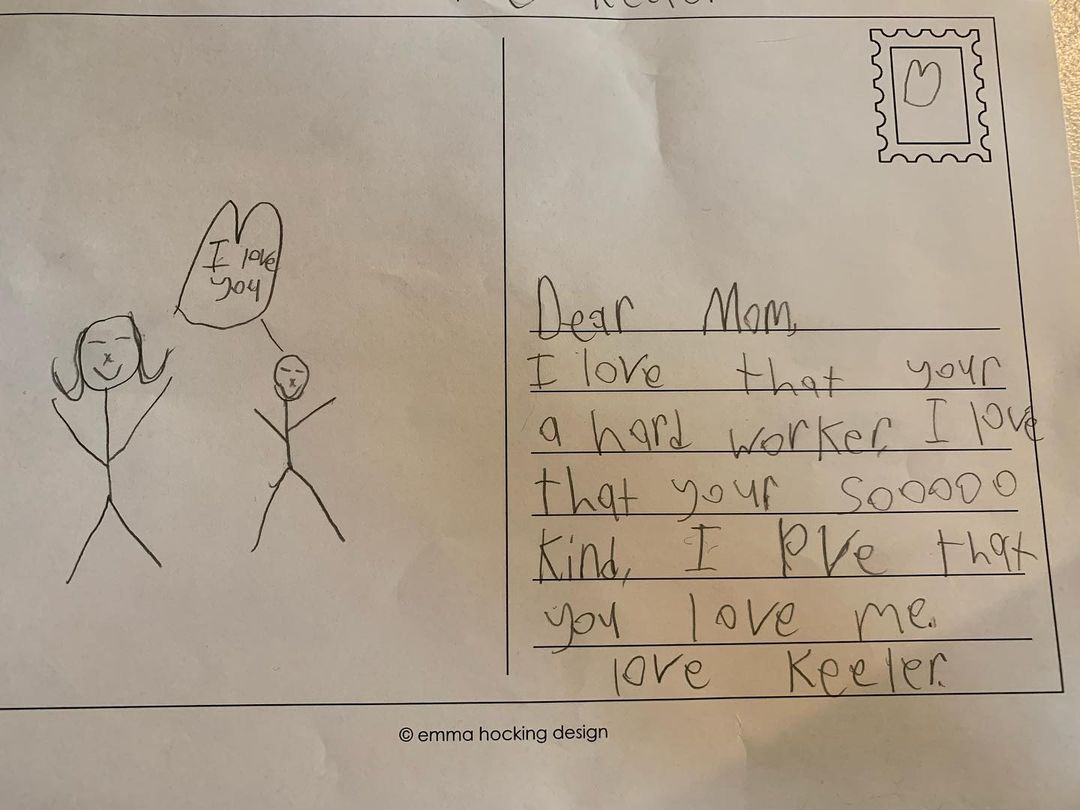 Keeler
I love
you
Dear Mom,
I love that your
a hard worker. I love
that your sooooo
Kind, I love that
you love me.
love Keeler.
© emma hocking design